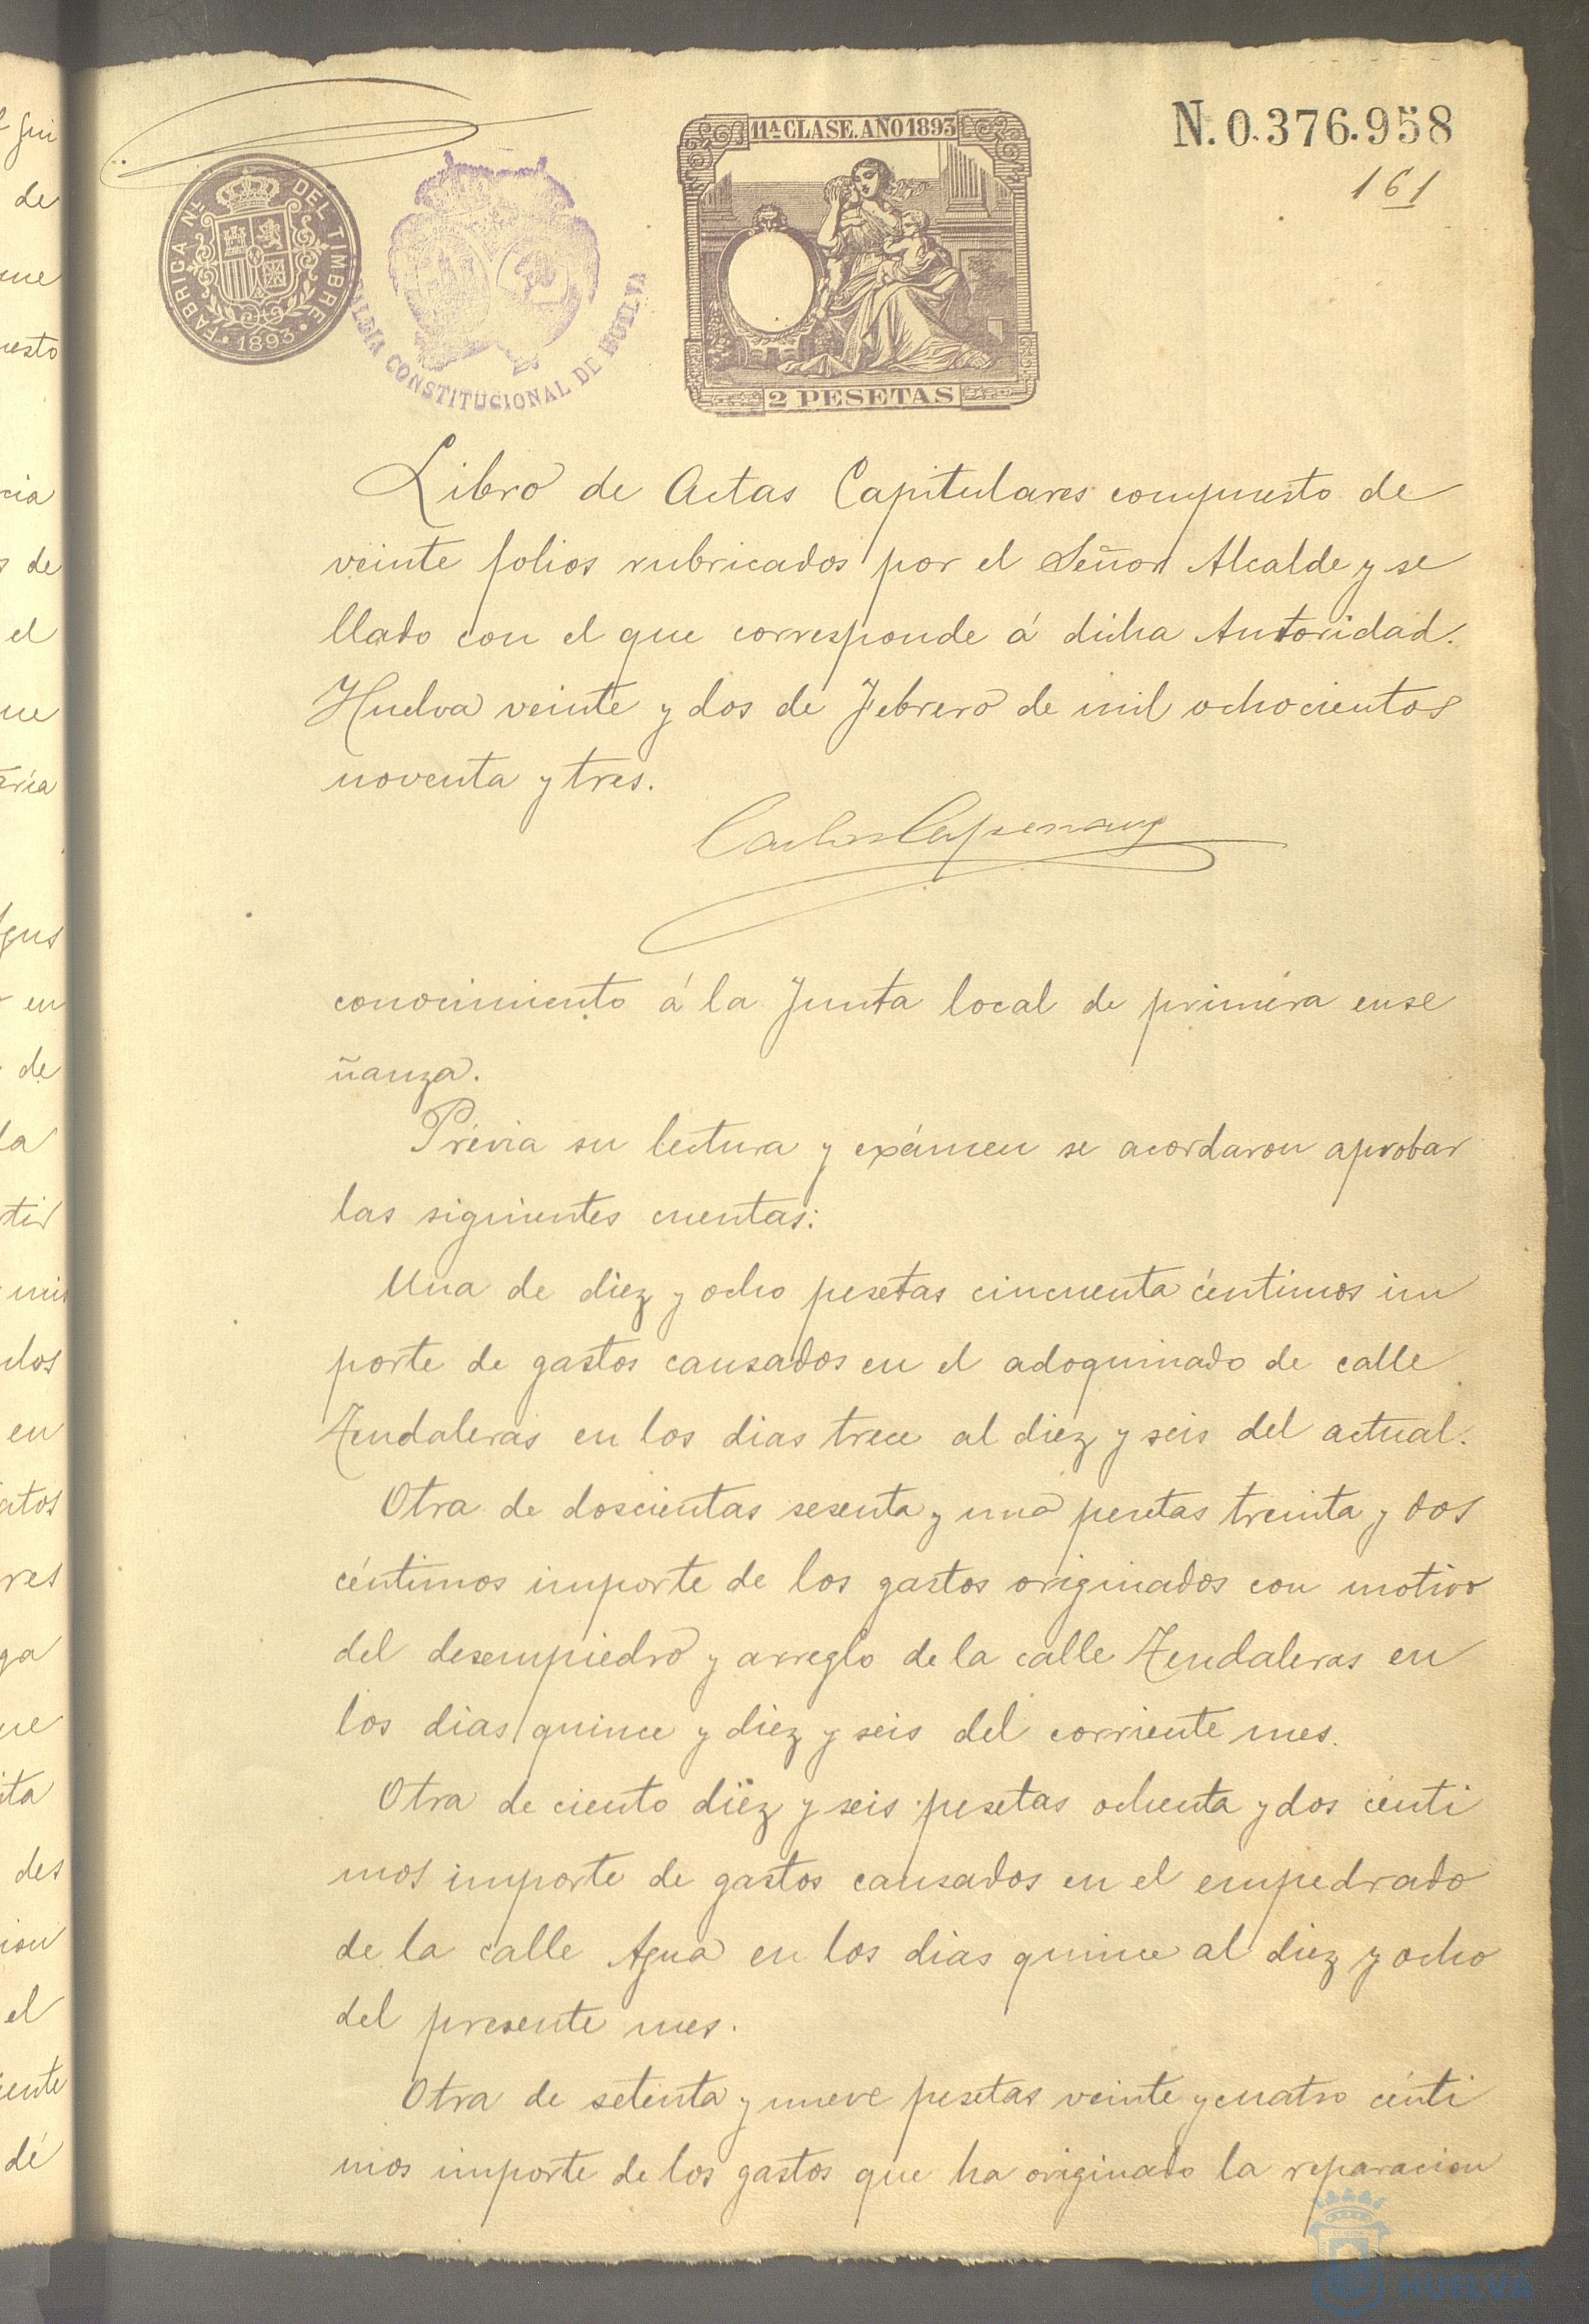 N.0.376.958
161
11ª CLASE. AÑO 1893
FABRICA Nᴸ DEL TIMBRE
1893
ALDIA CONSTITUCIONAL DE HUELVA
2 PESETAS
Libro de Actas Capitulares compuesto de
veinte folios rubricados por el Señor Alcalde y se
llado con el que corresponde á dicha Autoridad.
Huelva veinte y dos de Febrero de mil ochocientos
noventa y tres.
Carlos
conocimiento á la Junta local de primera ense
ñanza.
Prévia su lectura y exámen se acordaron aprobar
las siguientes cuentas:
Una de diez y ocho pesetas cincuenta céntimos im
porte de gastos causados en el adoquinado de calle
Zendaleras en los dias trece al diez y seis del actual.
Otra de doscientas sesenta y una pesetas treinta y dos
céntimos importe de los gastos originados con motivo
del desempiedro y arreglo de la calle Zendaleras en
los dias quince y diez y seis del corriente mes.
Otra de ciento diez y seis pesetas ochenta y dos cénti
mos importe de gastos causados en el empedrado
de la calle Agua en los dias quince al diez y ocho
del presente mes.
Otra de setenta y nueve pesetas veinte y cuatro cénti
mos importe de los gastos que ha originado la reparacion
HUELVA